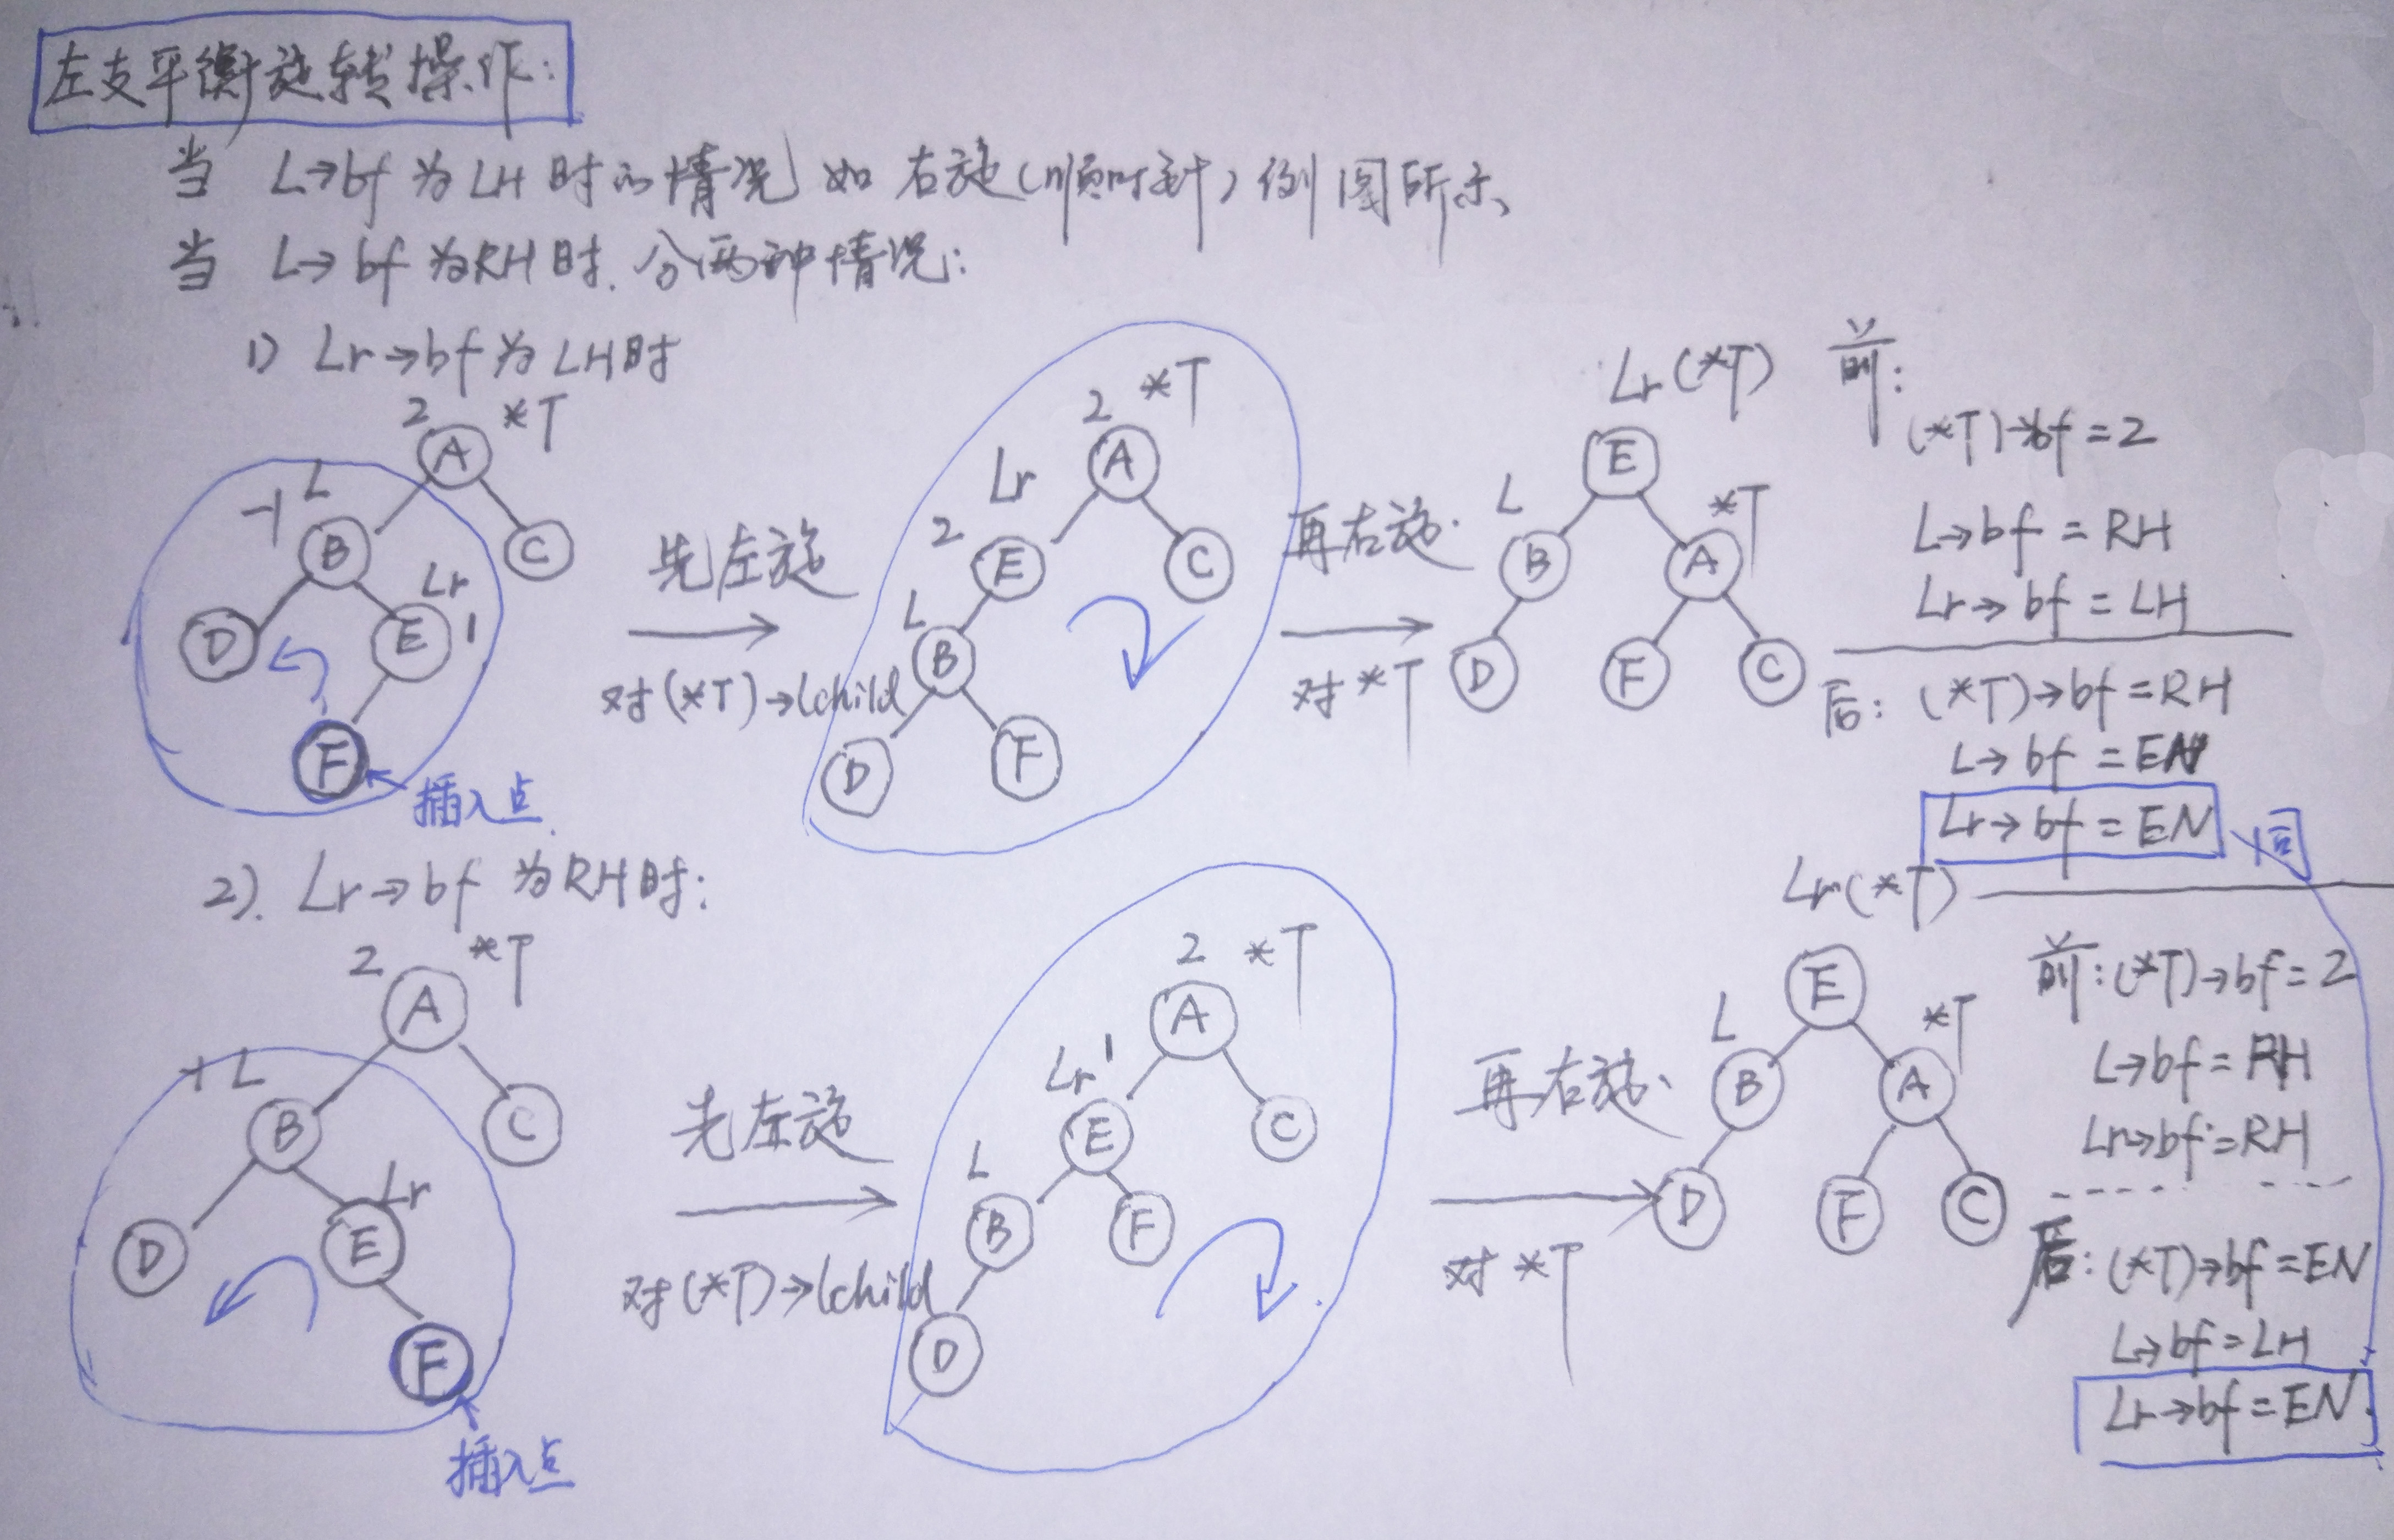 左支平衡旋转操作:
当 L→bf 为LH时的情况 如右旋(顺时针)例图所示、
当 L→bf 为RH时.分两种情况:
1) Lr→bf为LH时
2 *T
A
L
-1
B
C
Lr
D
E 1
F
插入点.
先左旋
对(*T)→lchild
2 *T
Lr
A
2
E
C
L
B
D
F
再右旋.
对*T
Lr(*T)
E
L
*T
B
A
D
F
C
前:
(*T)→bf=2
L→bf=RH
Lr→bf=LH
后: (*T)→bf=RH
L→bf=EN
Lr→bf=EN
同
2). Lr→bf 为RH时:
2 *T
A
L
B
C
Lr
D
E
F
插入点
先左旋
对(*T)→lchild
2 *T
A
Lr 1
E
C
L
B
F
D
再右旋.
对*T
Lr(*T)
E
L
*T
B
A
D
F
C
前:(*T)→bf=2
L→bf=RH
Lr→bf=RH
后:(*T)→bf=EN
L→bf=LH
Lr→bf=EN.